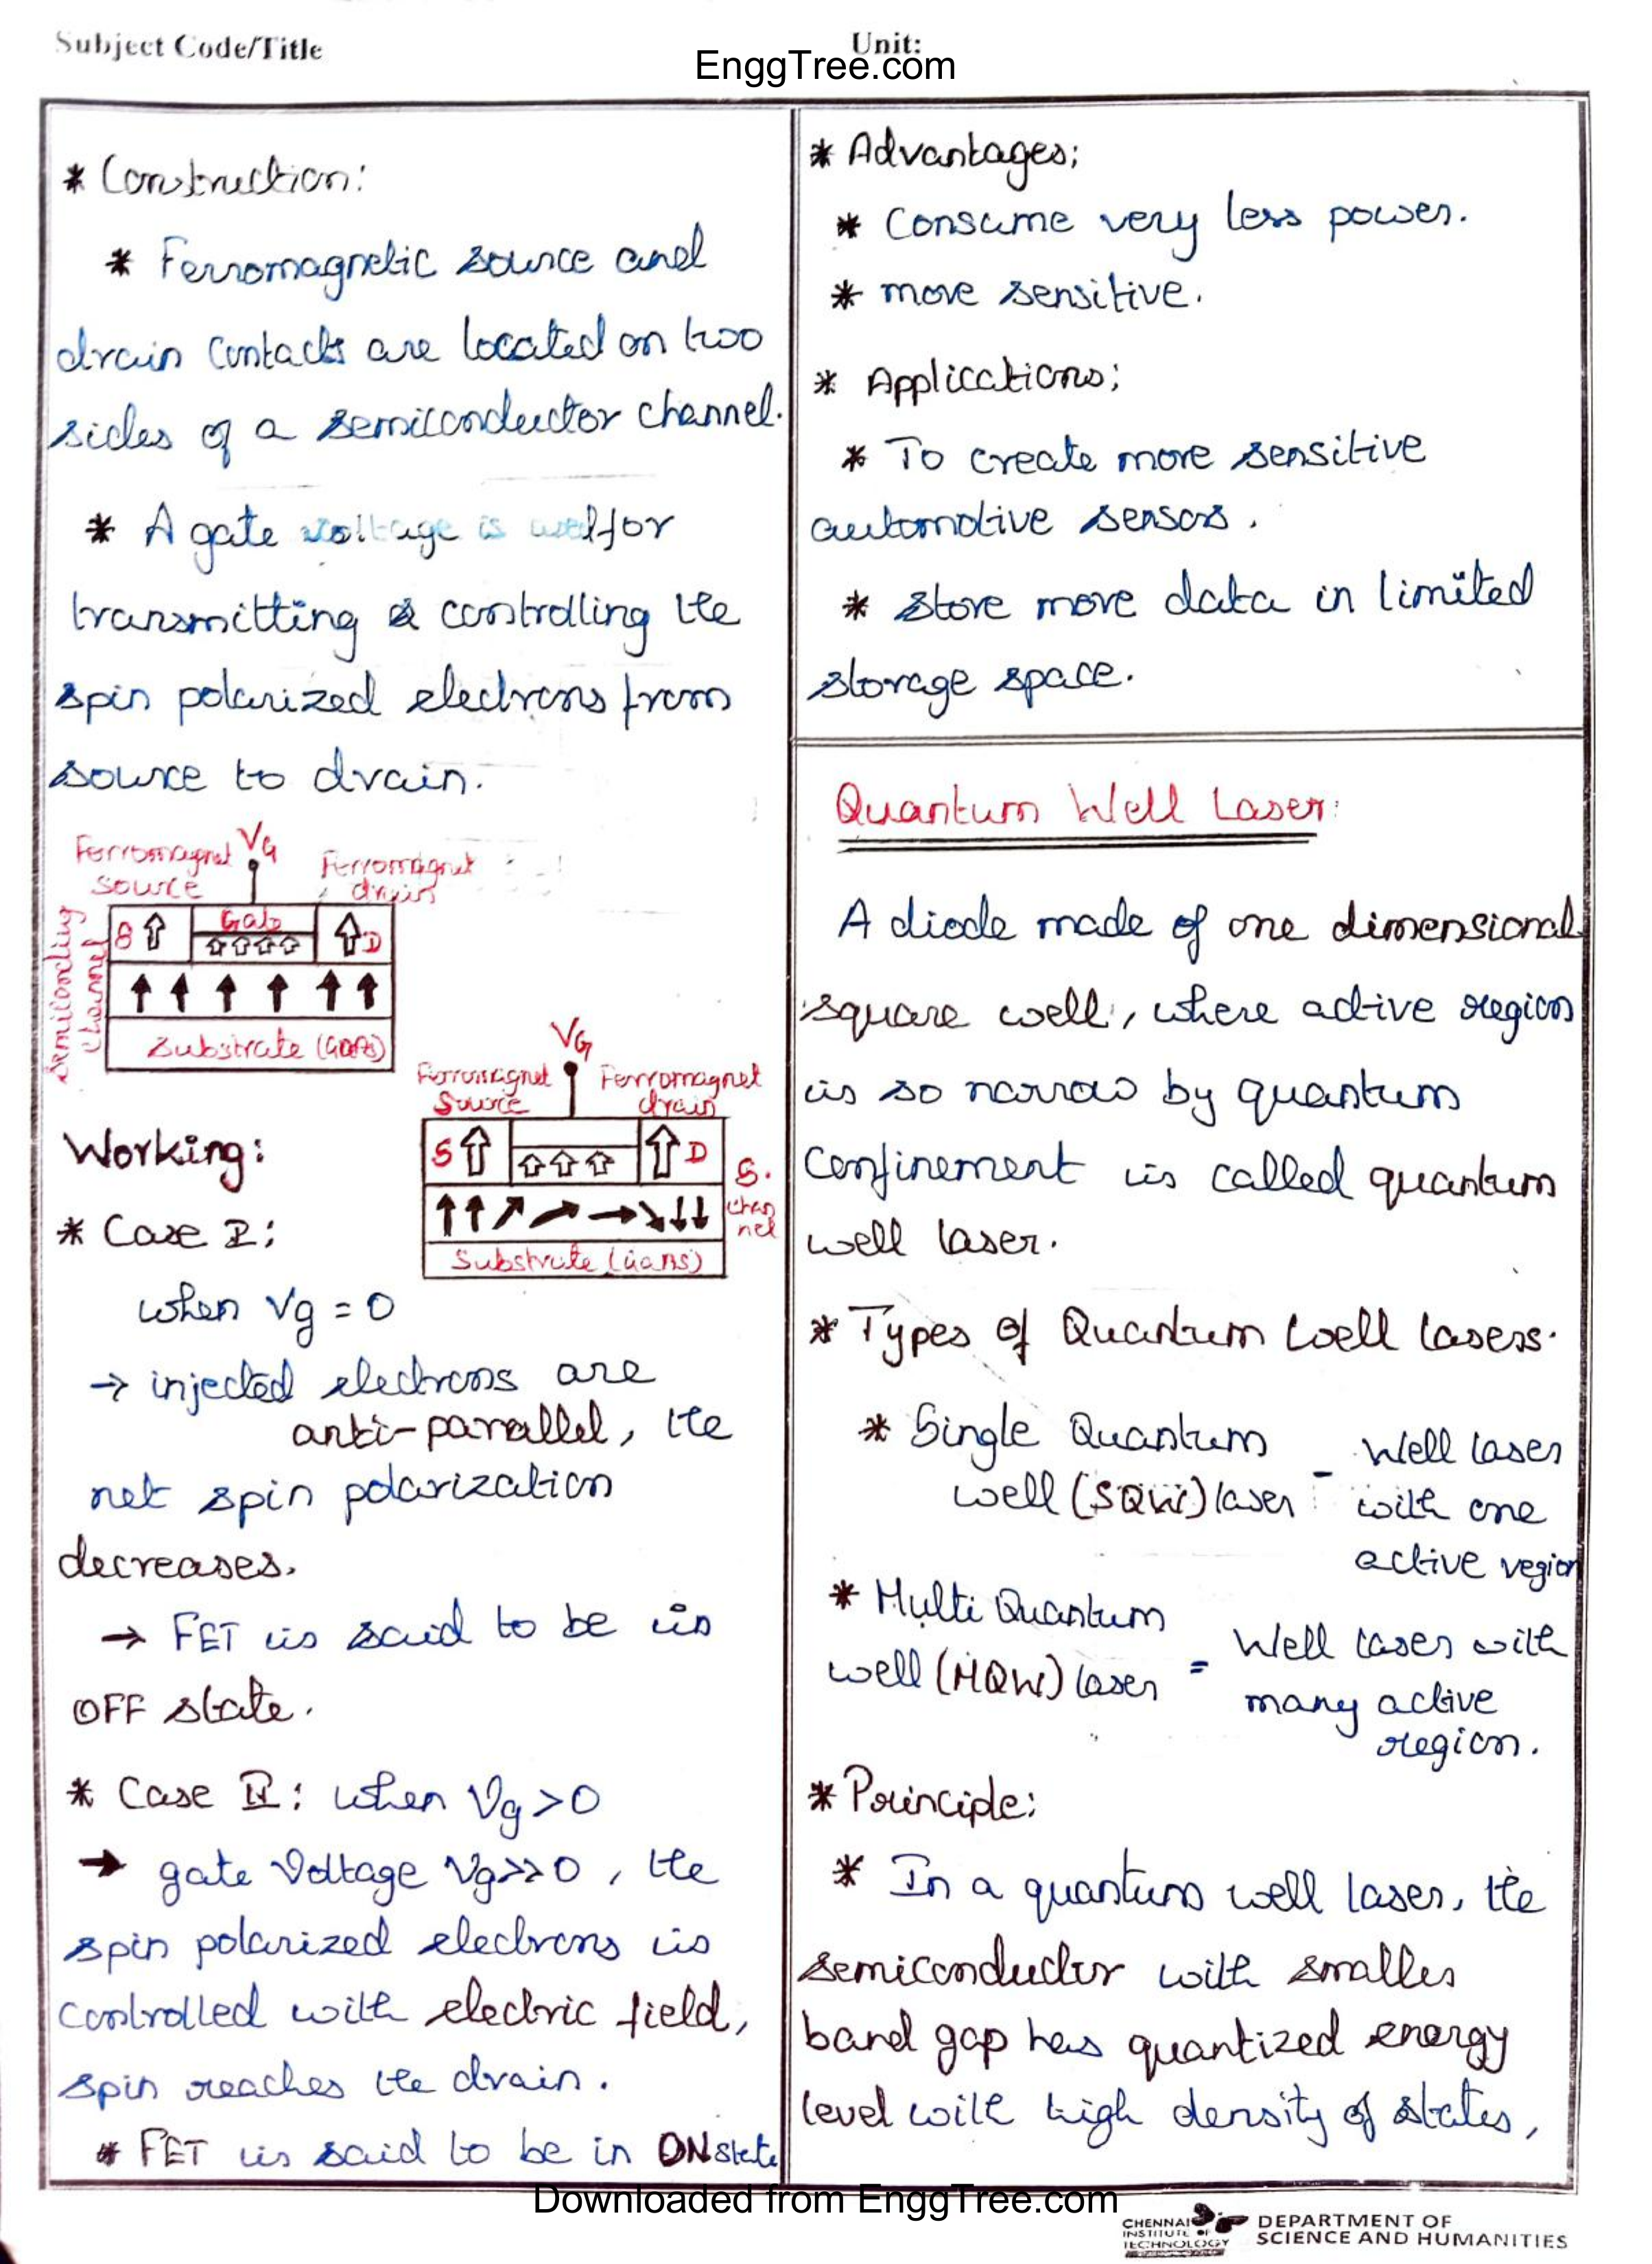 Subject Code/Title
Unit:
EnggTree.com
* Construction:
* Ferromagnetic source and
drain contacts are located on two
sides of a semiconductor channel.
* A gate voltage is used for
transmitting & controlling the
spin polarized electrons from
source to drain.
Ferromagnet source
VG
Ferromagnet drain
Semiconducting channel
S
Gate
D
Substrate (GaAs)
VG
Ferromagnet Source
Ferromagnet drain
S
D
S. channel
Substrate (GaAs)
Working:
* Case I:
when Vg = 0
→ injected electrons are
anti-parallel, the
net spin polarization
decreases.
→ FET is said to be in
OFF state.
* Case II: when Vg>0
→ gate Voltage Vg>>0, the
spin polarized electrons is
controlled with electric field,
spin reaches the drain.
* FET is said to be in ON state
* Advantages:
* Consume very less power.
* more sensitive.
* Applications:
* To create more sensitive
automotive sensors.
* Store more data in limited
storage space.
Quantum Well Laser:
A diode made of one dimensional
square well, where active region
is so narrow by quantum
confinement is called quantum
well laser.
* Types of Quantum well lasers.
* Single Quantum
well (SQW) laser - Well laser
with one
active region
* Multi Quantum
well (MQW) laser = Well laser with
many active
region.
* Principle:
* In a quantum well laser, the
semiconductor with smaller
band gap has quantized energy
level with high density of states,
Downloaded from EnggTree.com
CHENNAI
INSTITUTE OF
TECHNOLOGY
DEPARTMENT OF
SCIENCE AND HUMANITIES